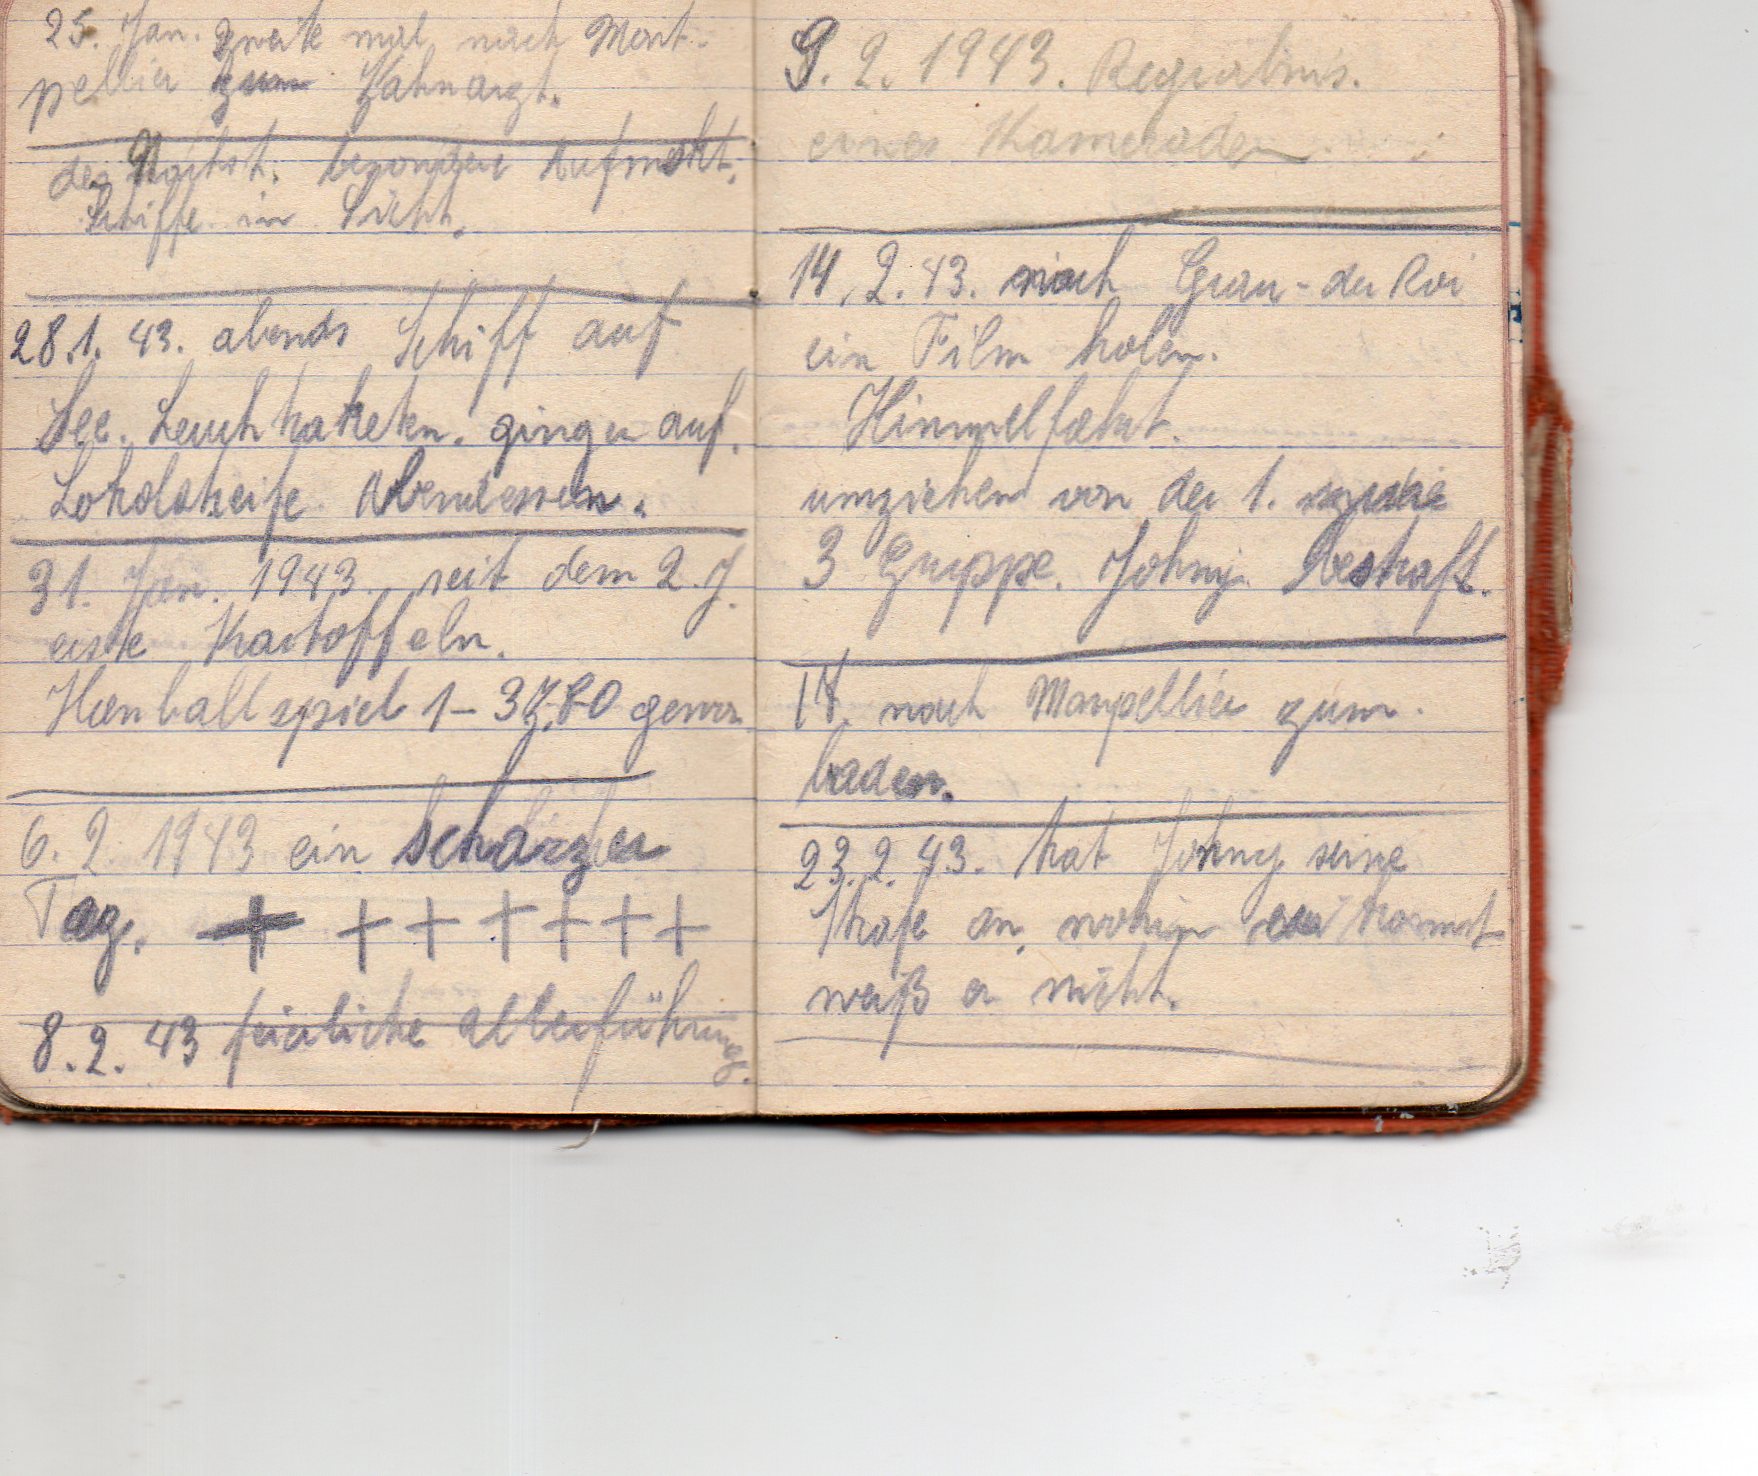 25. Jan. zweite mal nach Mont-
pellier zum Zahnarzt.
der Nachts. besondere Aufmerkt.
Schiffe in Sicht.
28.1.43. abends Schiff auf
See. Leuchtraketen. gingen auf.
Lokalstreife. Abendessen.
31. Jan. 1943. seit dem 2. J.
erste Kartoffeln.
Hanballspiel 1-3 Z.80 gewon.
6.2.1943 ein schwarzer
Tag. + + + + + + +
8.2.43 feierliche
9.2.1943. Begräbnis.
eines Kameraden
14.2.43. nach Grau-du Roi
ein Film holen.
Himmelfahrt.
umziehen von der 1. in die
3 Gruppe. Johny bestraft.
nach Monpellier zum.
baden.
23.2.43. trat Johny seine
Strafe an, wohin er kommt
weiß er nicht.